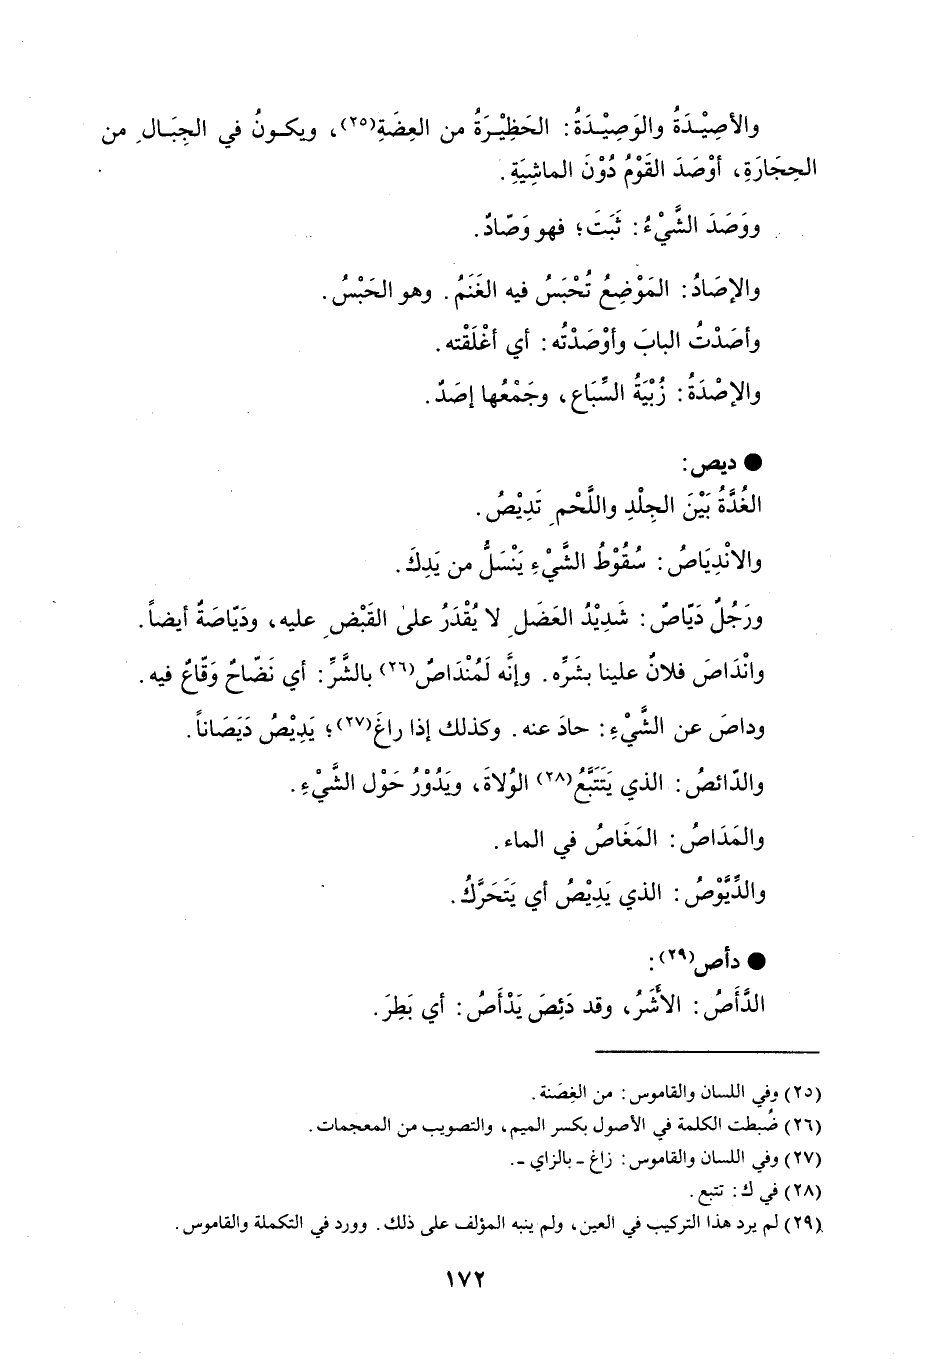 والأصِيْدَةُ والوَصِيْدَةُ: الحَظِيْرَةُ من العِضَةِ(٢٥)، ويكونُ في الجِبَالِ من
الحِجَارَةِ، أوْصَدَ القَوْمُ دُوْنَ الماشِيَةِ.
ووَصَدَ الشَّيْءُ: ثَبَتَ؛ فهو وَصّادٌ.
والإصَادُ: المَوْضِعُ تُحْبَسُ فيه الغَنَمُ. وهو الحَبْسُ.
وأصَدْتُ البابَ وأوْصَدْتُه: أي أغْلَقْته.
والإصْدَةُ: زُبْيَةُ السِّبَاعِ، وجَمْعُها إصَدٌ.
● ديص:
الغُدَّةُ بَيْنَ الجِلْدِ واللَّحْمِ تَدِيْصُ.
والانْدِيَاصُ: سُقُوْطُ الشَّيْءِ يَنْسَلُّ من يَدِكَ.
ورَجُلٌ دَيّاصٌ: شَدِيْدُ العَضَلِ لا يُقْدَرُ علىٰ القَبْضِ عليه، ودَيّاصَةٌ أيضاً.
وانْدَاصَ فلانٌ علينا بشَرِّه. وإنَّه لَمُنْدَاصٌ(٢٦) بالشَّرِّ: أي نَضّاحٌ وَقّاعٌ فيه.
وداصَ عن الشَّيْءِ: حادَ عنه. وكذلك إذا راغَ(٢٧)؛ يَدِيْصُ دَيَصَاناً.
والدّائصُ: الذي يَتَتَبَّعُ(٢٨) الوُلاةَ، ويَدُوْرُ حَوْل الشَّيْءِ.
والمَدَاصُ: المَغَاصُ في الماء.
والدِّيَّوْصُ: الذي يَدِيْصُ أي يَتَحَرَّكُ.
● دأص(٢٩):
الدَّأَصُ: الأَشَرُ، وقد دَئِصَ يَدْأَصُ: أي بَطِرَ.
(٢٥) وفي اللسان والقاموس: من الغِصَنة.
(٢٦) ضُبطت الكلمة في الأصول بكسر الميم، والتصويب من المعجمات.
(٢٧) وفي اللسان والقاموس: زاغ ـ بالزاي ـ.
(٢٨) في ك: تتبع.
(٢٩) لم يرد هذا التركيب في العين، ولم ينبه المؤلف على ذلك. وورد في التكملة والقاموس.
١٧٢